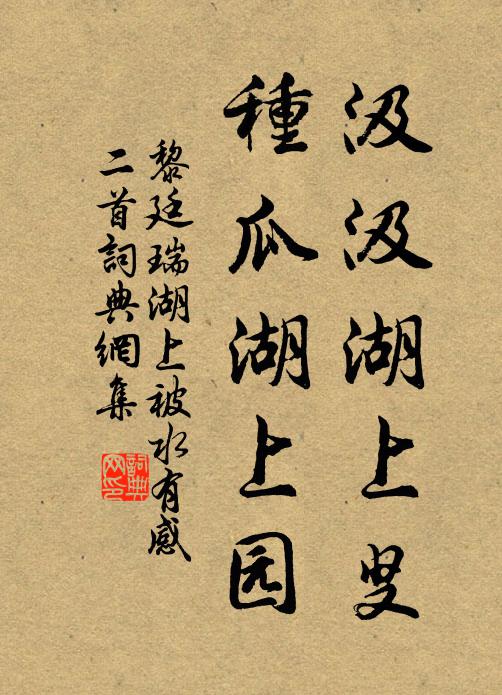 汲汲湖上叟
種瓜湖上园
黎廷瑞湖上被水有感
二首詞典網集
詞典
网印